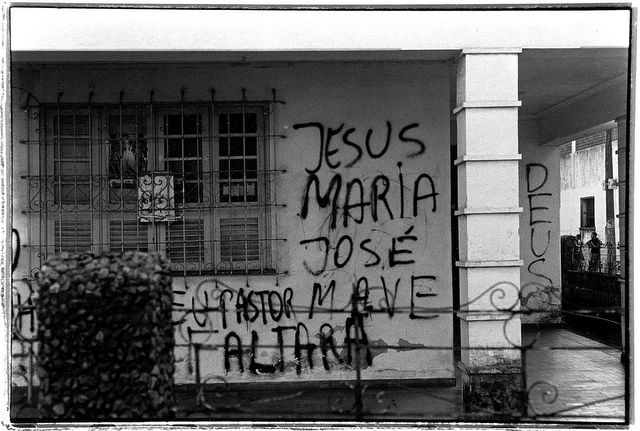 JESUS
MARIA
JOSÉ
EU PASTOR M AVE
TALTARA
DEUS